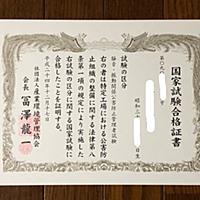 国家試験合格証書
第〇九
昭和三十
日生
試験の区分
騒音・振動関係公害防止管理者試験
右の者は特定工場における公害防
止組織の整備に関する法律第八
条第一項の規定により実施した
右試験の区分に関する国家試験に
合格したことを証明する
平成二十四年十二月十七日
社団法人産業環境管理協会
会長 冨澤龍一